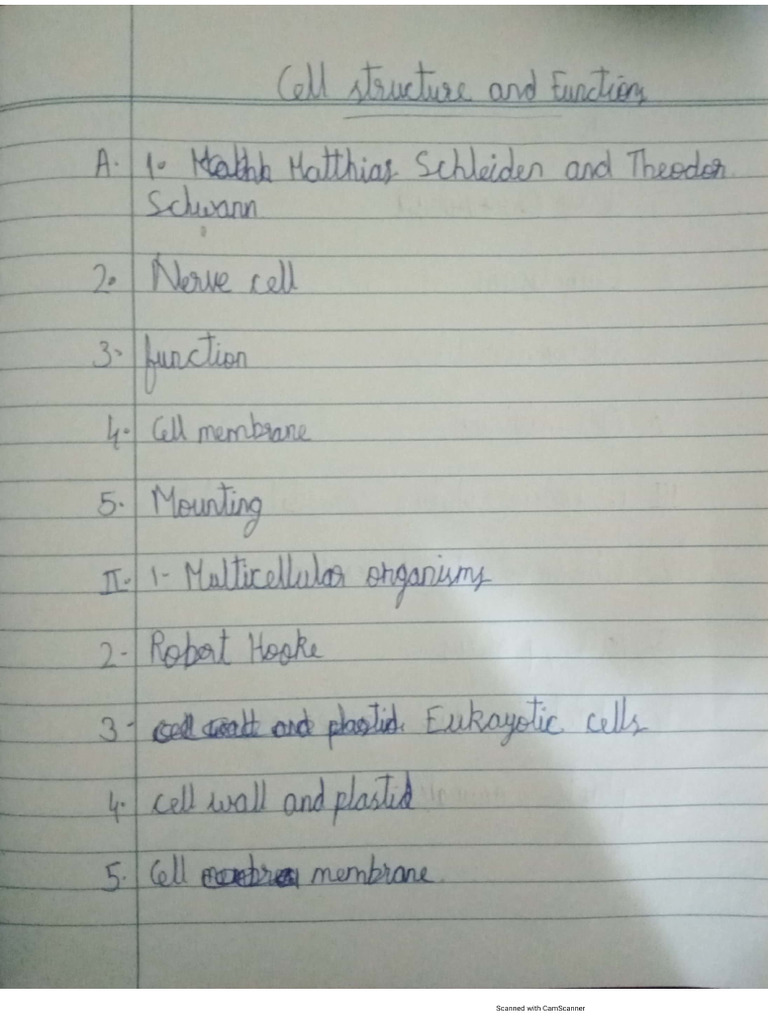 Cell structure and Functions
A. 1. Matthias Schleiden and Theodor
Schwann
2. Nerve cell
3. function
4. Cell membrane
5. Mounting
II. 1- Multicellular organisms
2- Robert Hooke
3- cell wall and plastid. Eukayotic cells
4. cell wall and plastid
5. Cell membrane
Scanned with CamScanner